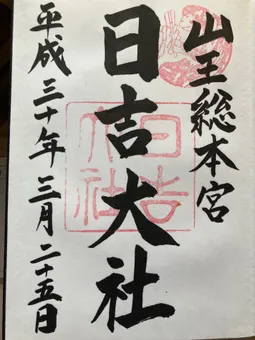 山王総本宮
日吉大社
平成三十年三月二十五日